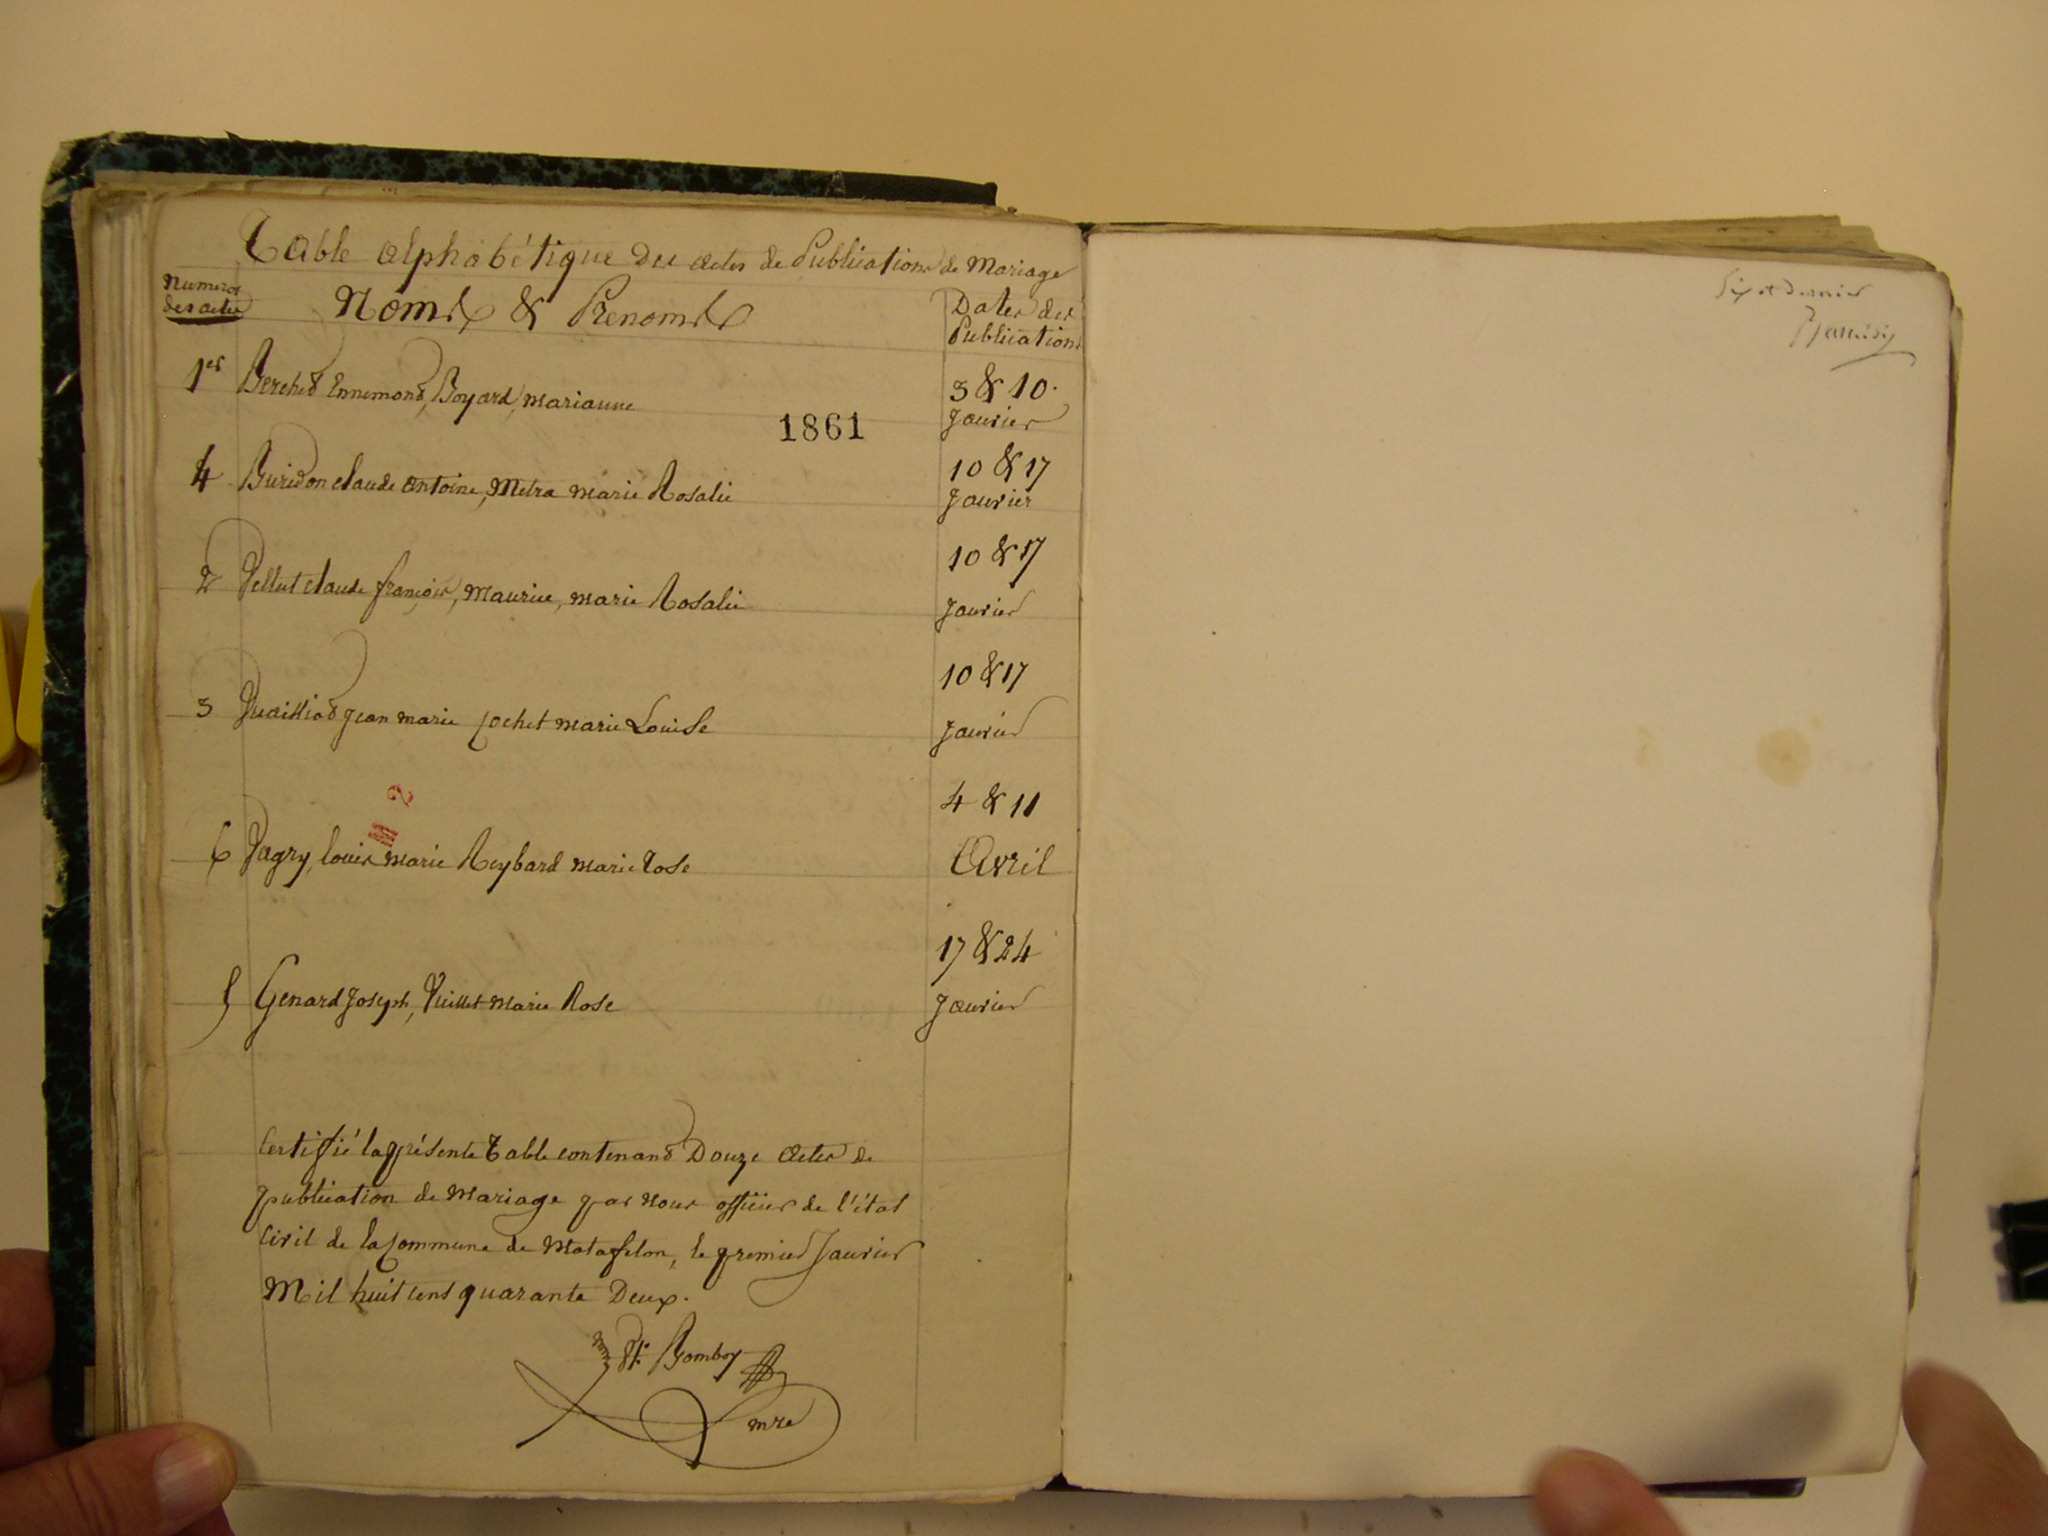 Table alphabétique des actes de Publications de Mariage
Numeros
des actes
Noms & Prenoms
Dates des
Publications
1er Berched Ennemond, Boyard, marianne
3 & 10.
Janvier
1861
4 Buridon claude antoine, Metra marie Rosalie
10 & 17
Janvier
2 Pellut claude françois, Maurice, marie Rosalie
10 & 17
Janvier
3 Jean marie Cochet marie Louise
10 & 17
Janvier
6 louis marie Reybard marie Rose
4 & 11
Avril
5 Genard Joseph, Vuillet Marie Rose
17 & 24
Janvier
2
Certifié la présente Table contenant Douze actes de
publication de Mariage par nous officier de l'état
Civil de la Commune de Matafelon, le premier Janvier
Mil huit cent quarante Deux.
Bomboy
mre
Six et dernier